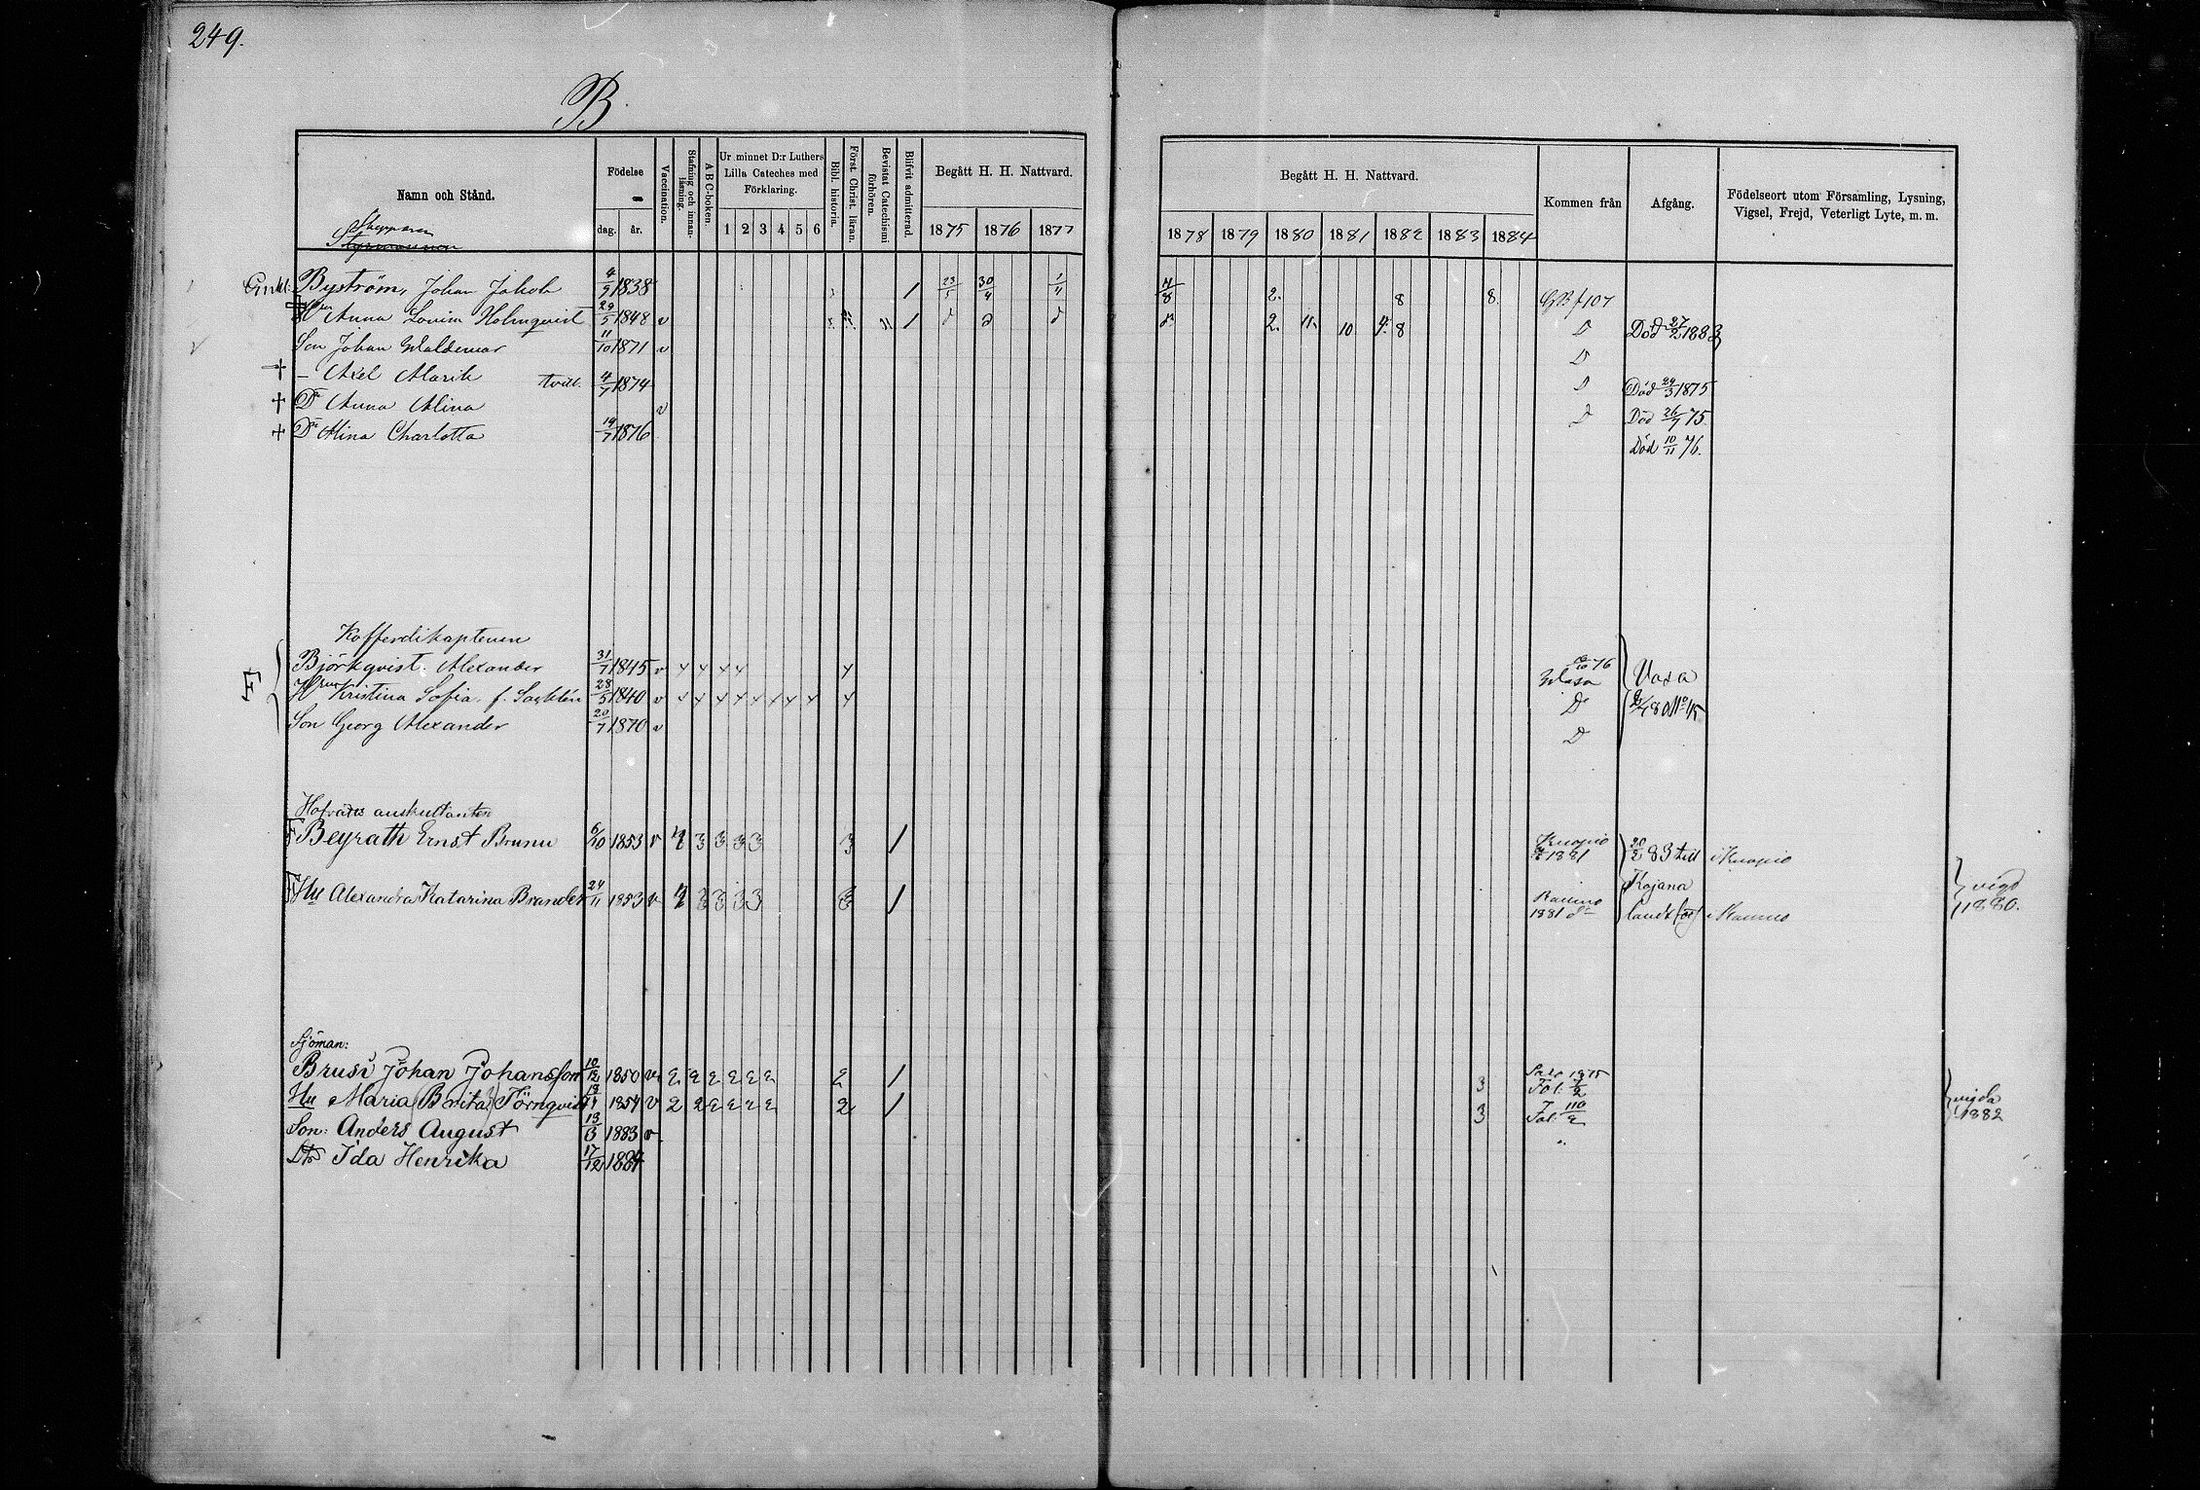 249.
B.
Namn och Stånd.
Födelse
dag. år.
Vaccination.
Stafning och innan-läsning.
ABC-boken.
Ur minnet D:r Luthers Lilla Cateches med Förklaring.
1 2 3 4 5 6
Bibl. historia.
Först. Christ. läran.
Bevistat Catechismi förhören.
Blifvit admitterad.
Begått H. H. Nattvard.
1875 1876 1877
Begått H. H. Nattvard.
1878 1879 1880 1881 1882 1883 1884
Kommen från
Afgång.
Födelseort utom Församling, Lysning, Vigsel, Frejd, Veterligt Lyte, m. m.
Skepparen
Styrmannen
Enkl. Byström, Johan Jakob 4/9 1838 1 23/5 30/4 1/11 11/8 2. 8 8. GB f 107
Hu Anna Lovisa Holmqvist 29/5 1848 v 1 2. 11. 10 4. 8 D Död 27/2 1883
Son Johan Waldemar 11/10 1871 v D
† – Axel Alarik tvill. 4/7 1874 D Död 29/3 1875
† Dr Anna Alina v D Död 26/7 75.
† Dr Alina Charlotta 19/7 1876 Död 10/11 76.
Kofferdikaptenen
F Björkqvist. Alexander 31/7 1845 v 76 Wasa Vasa
Hrun Kristina Sofia f. 28/5 1840 v Do 80 No 115
Son Georg Alexander 20/7 1870 v D
Hofrätts auskultanten
F Beyrath Ernst Bruno 6/10 1853 v 3 3 3 3 3 1 Kuopio 1881 20/2 83 till i Kuopio
F Hu Alexandra Katarina Brander 24/11 1853 v 3 3 3 3 3 1 Raumo 1881 Kajana landsförs i Raumo vigd 1880.
Sjöman:
Brusi Johan Johansson 10/12 1850 v. 2 2 2 2 2 2 2 1 3 1875 Fol.
Hu Maria (Brita) Törnqvist 1854 v 2 2 2 2 2 2 2 1 3 Fol. 110/2 vigda 1882
Son: Anders August 13/3 1883 v.
Dtr Ida Henrika 17/12 1884